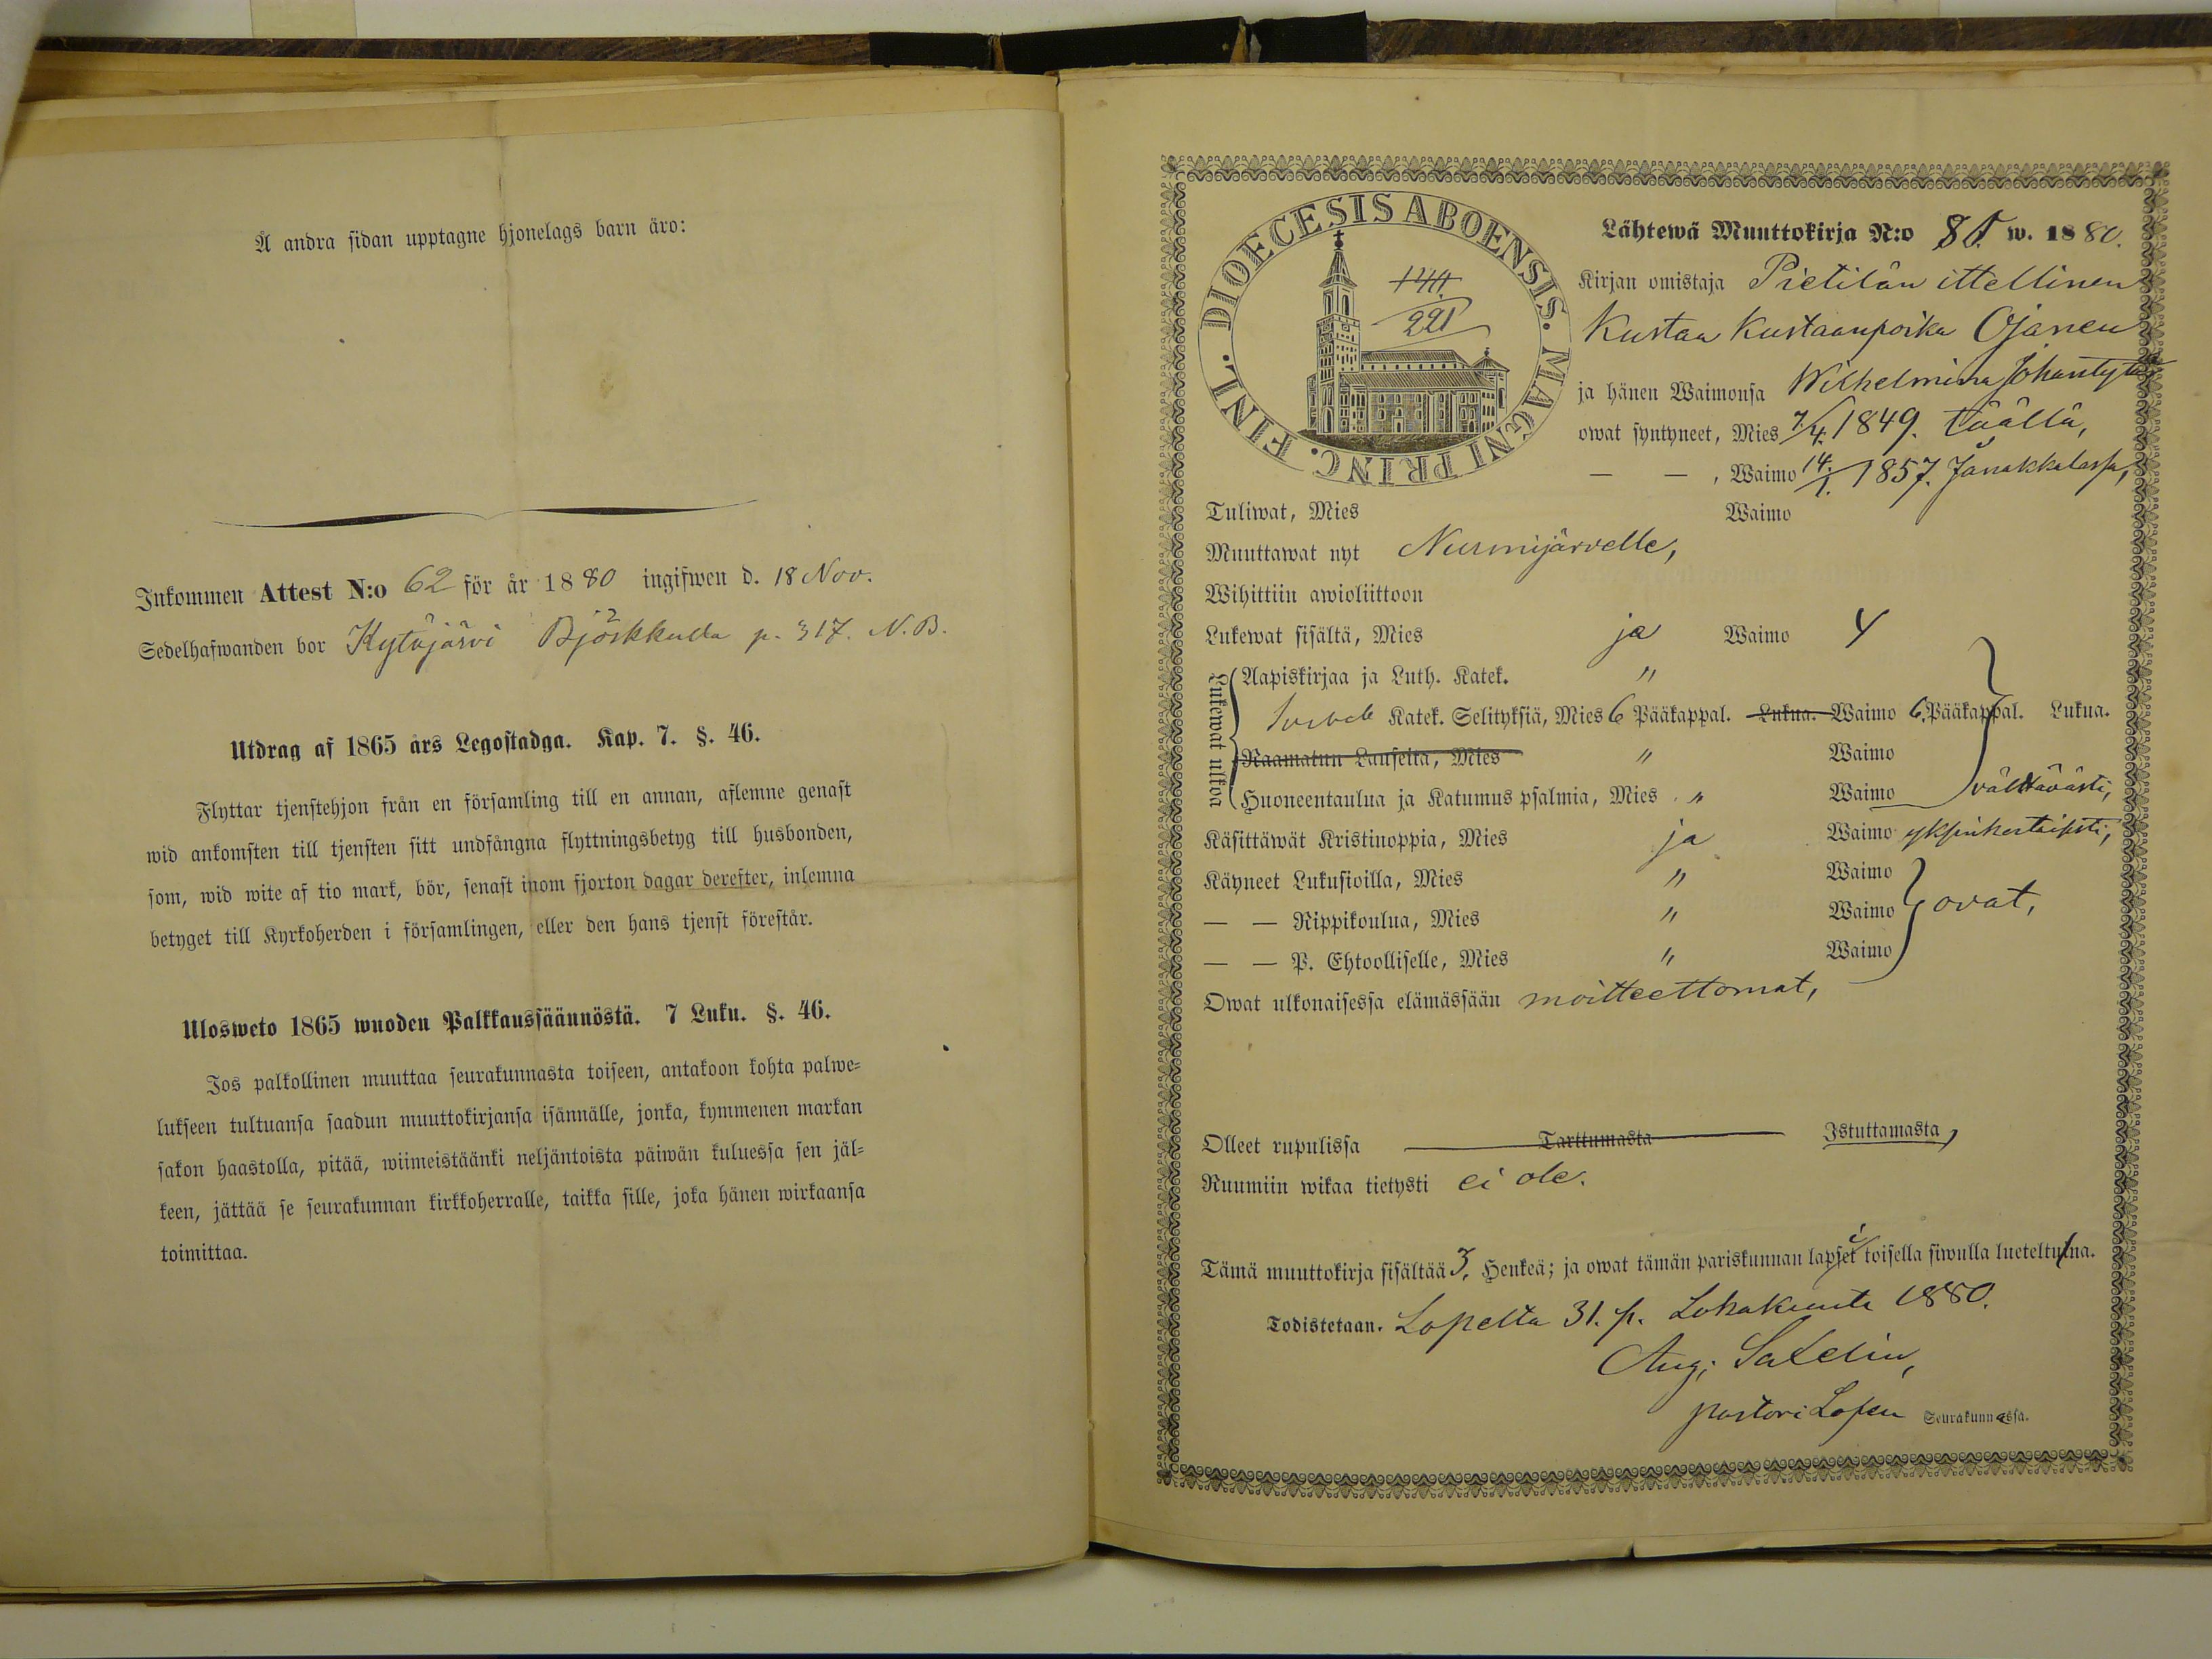 Å andra sidan upptagne hjonelags barn äro:
Inkommen Attest N:o 62 för år 1880 ingifwen d. 18 Nov.
Sedelhafwanden bor Kytäjärvi Björkkulla p. 317. N.B.
Utdrag af 1865 års Legostadga. Kap. 7. §. 46.
Flyttar tjenstehjon från en församling till en annan, aflemne genast
wid ankomsten till tjensten sitt undfångna flyttningsbetyg till husbonden,
som, wid wite af tio mark, bör, senast inom fjorton dagar derefter, inlemna
betyget till Kyrkoherden i församlingen, eller den hans tjenst förestår.
Ulosweto 1865 wuoden Palkkaussäännöstä. 7 Luku. §. 46.
Jos palkollinen muuttaa seurakunnasta toiseen, antakoon kohta palwe=
lukseen tultuansa saadun muuttokirjansa isännälle, jonka, kymmenen markan
sakon haastolla, pitää, wiimeistäänki neljäntoista päiwän kuluessa sen jäl=
keen, jättää se seurakunnan kirkkoherralle, taikka sille, joka hänen wirkaansa
toimittaa.
DIOECESIS ABOENSIS. MAGNI PRINC. FINL.
221
Lähtewä Muuttokirja N:o w. 1880.
Kirjan omistaja Pietilän ittellinen
Kustaa Kustaanpoika Ojanen
ja hänen Waimonsa Wilhelmina Johantytär
owat syntyneet, Mies 7/4 1849. täällä,
— — , Waimo 14./1. 1857. Janakkalassa,
Tuliwat, Mies Waimo
Muuttawat nyt Nurmijärvelle,
Wihittiin awioliittoon
Lukewat sisältä, Mies ja Waimo
Lukewat ulkoa
Aapiskirjaa ja Luth. Katek. "
Katek. Selityksiä, Mies 6 Pääkappal. Lukua. Waimo 6. Pääkappal. Lukua.
Raamatun Lauseita, Mies " Waimo
Huoneentaulua ja Katumus psalmia, Mies " Waimo välttävästi,
Käsittäwät Kristinoppia, Mies ja Waimo yksinkertaisesti,
Käyneet Lukusioilla, Mies " Waimo
— — Rippikoulua, Mies " Waimo ovat,
— — P. Ehtoolliselle, Mies " Waimo
Owat ulkonaisessa elämässään moitteettomat,
Olleet rupulissa Tarttumasta Istuttamasta,
Ruumiin wikaa tietysti ei ole.
Tämä muuttokirja sisältää 3. Henkeä; ja owat tämän pariskunnan lapset toisella siwulla lueteltuina.
Todistetaan. Lopelta 31. p. Lokakuuta 1880.
Aug.
pastori Lopen Seurakunnassa.